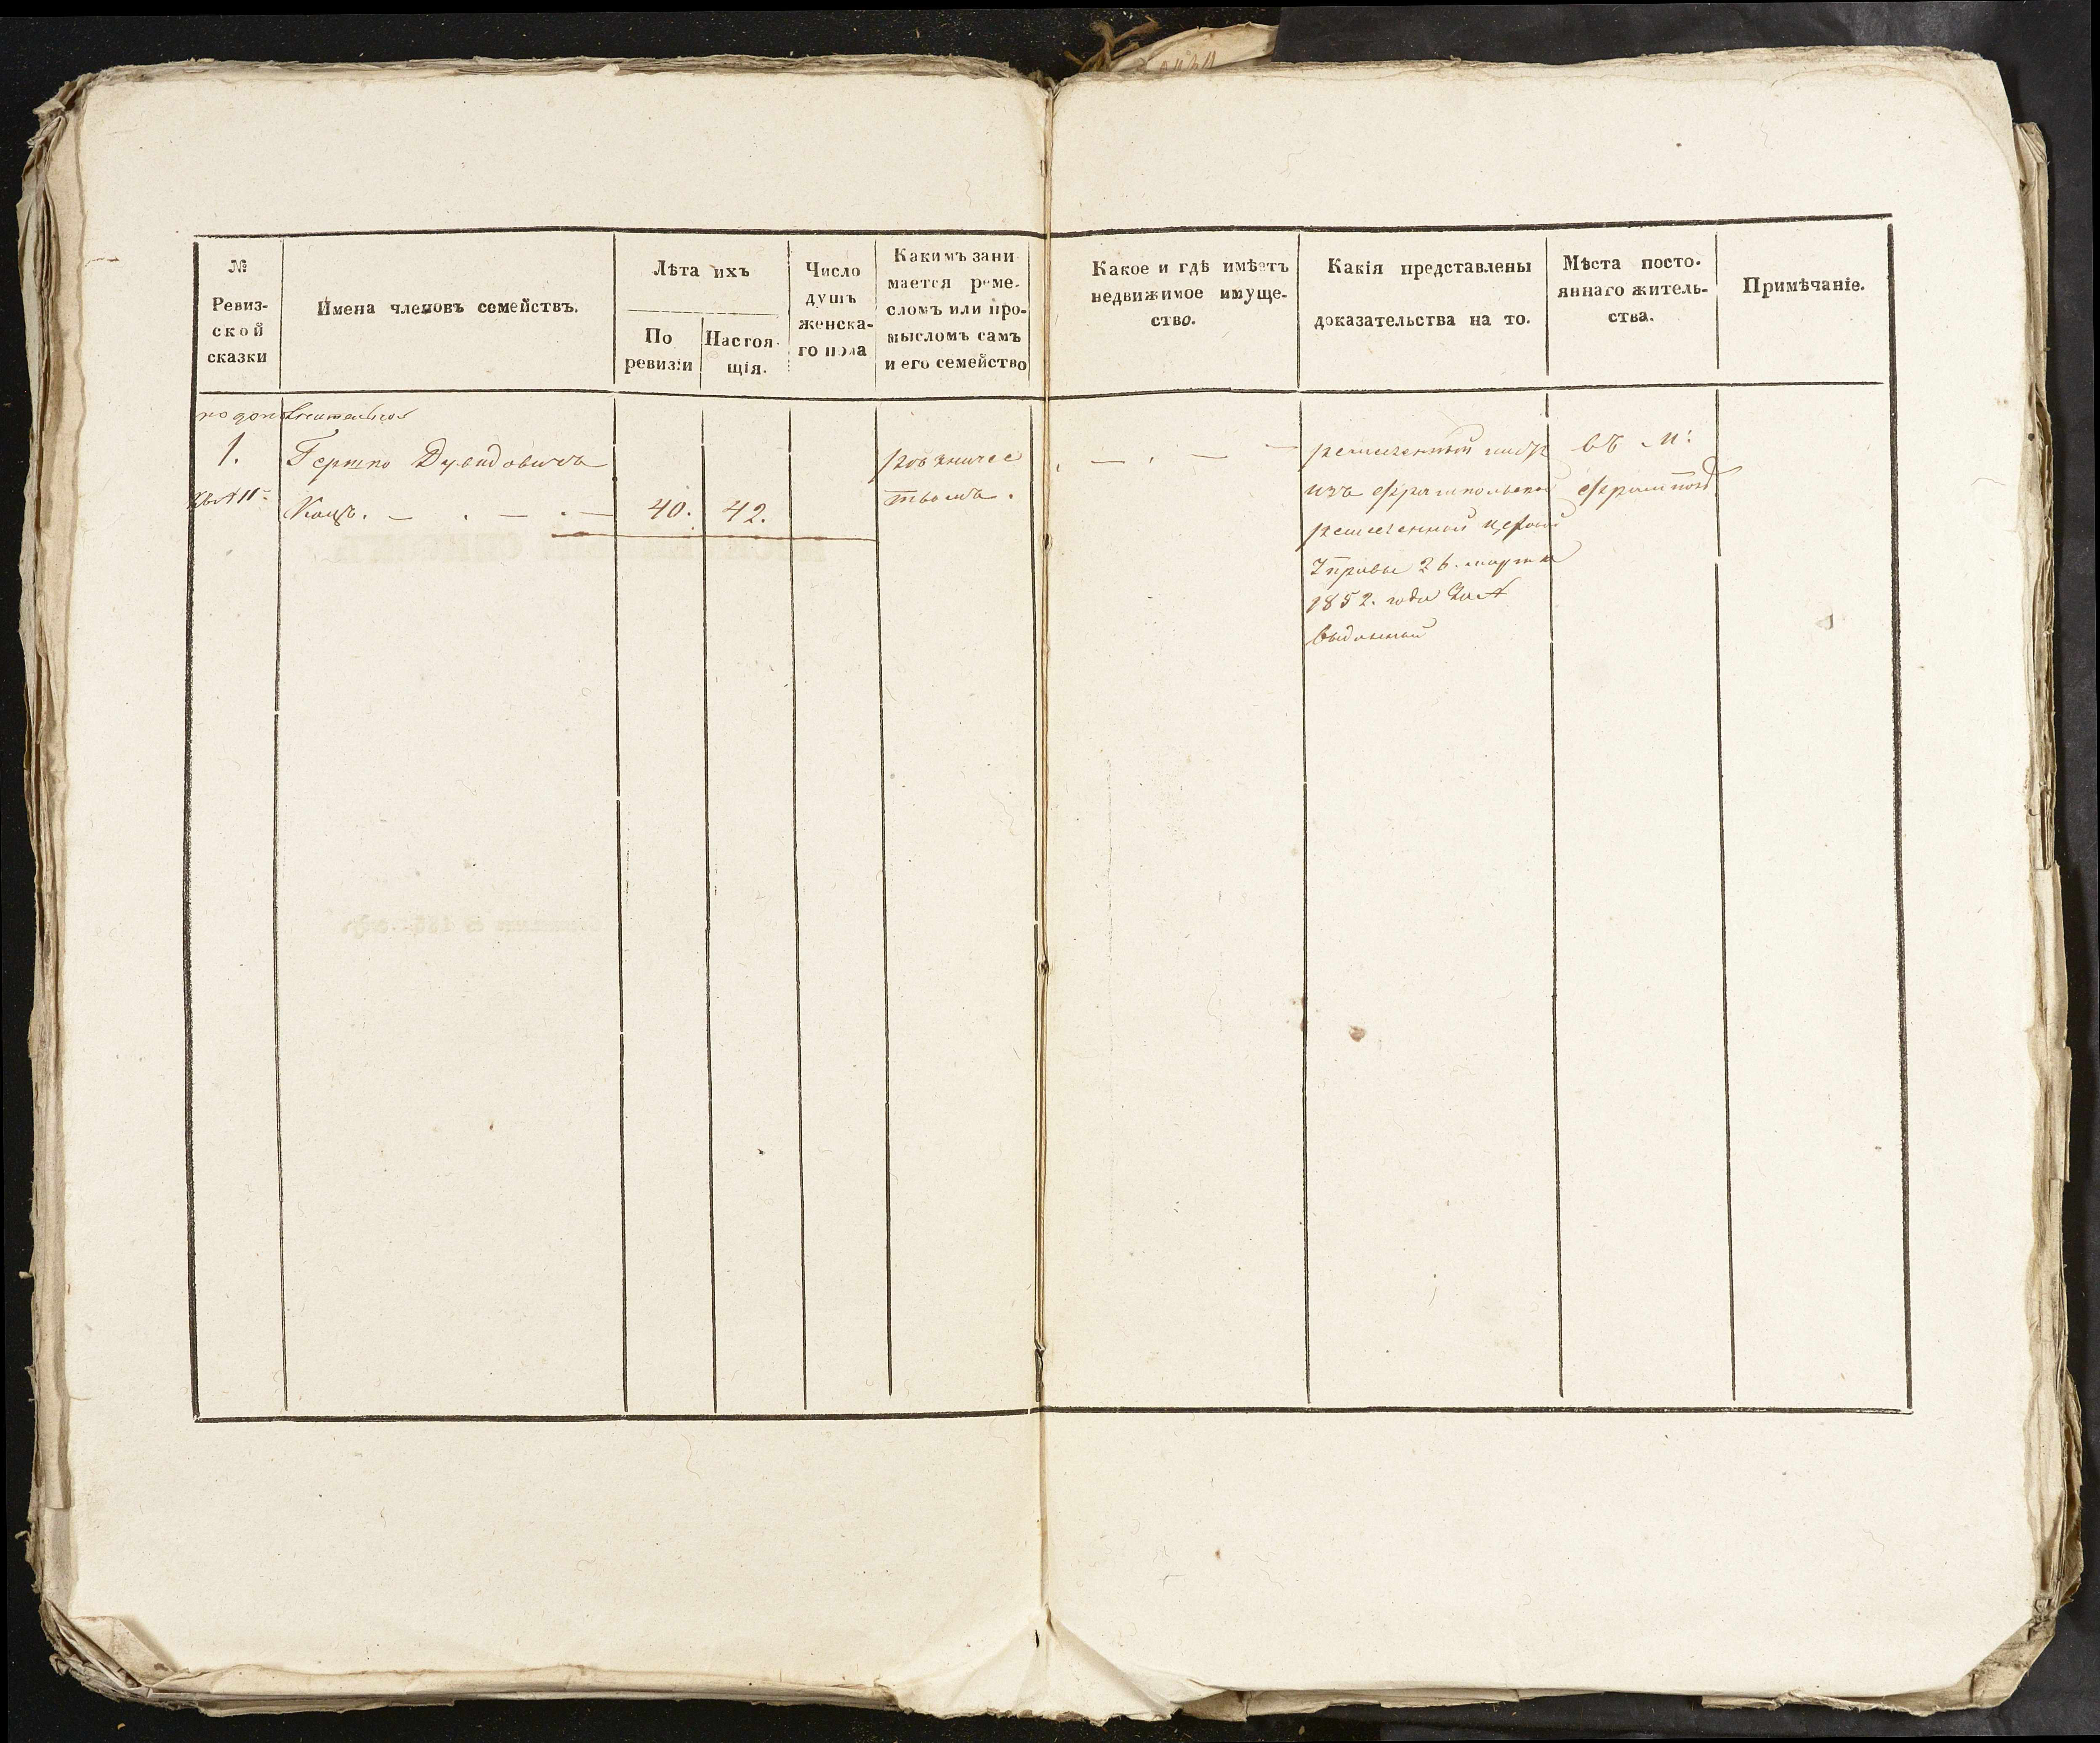 №
Ревиз-
ской
сказки
Имена членовъ семействъ.
Лѣта ихъ
По
ревизіи
Настоя-
щія.
Число
душъ
женска-
го пола
Какимъ зани
мается реме-
сломъ или про-
мысломъ самъ
и его семейство
Какое и гдѣ имѣетъ
недвижимое имуще-
ство.
Какія представлены
доказательства на то.
Мѣста посто-
яннаго житель-
ства.
Примѣчаніе.
по дополнительной
1.
Гершко Дувидовичъ
Кацъ. — . — . — 40. 42.
ремесленный
изъ
ремесленной
Управы 26. марта
1852. года За №
выданный
въ м: